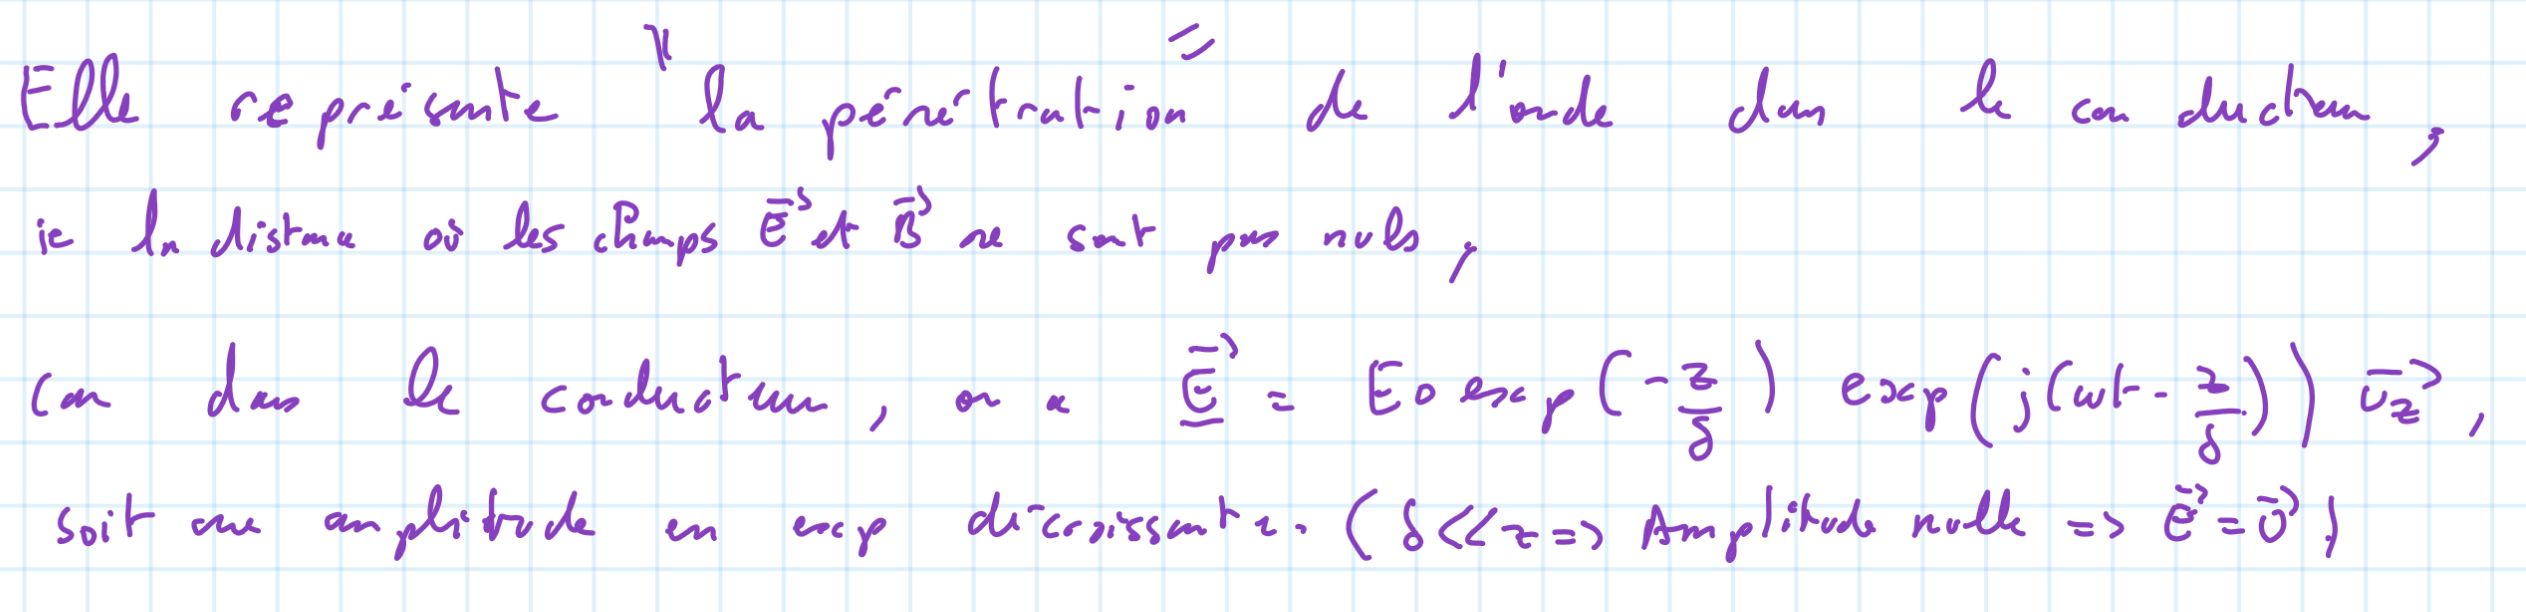 Elle représente "la pénétration" de l'onde dans le conducteur,
ie la distance où les champs E⃗ et B⃗ ne sont pas nuls,
Car dans le conducteur, on a E̲⃗ = E0 exp(-z/δ) exp(j(ωt - z/δ)) u⃗z,
soit une amplitude en exp décroissante. (δ << z => Amplitude nulle => E⃗ = 0⃗)